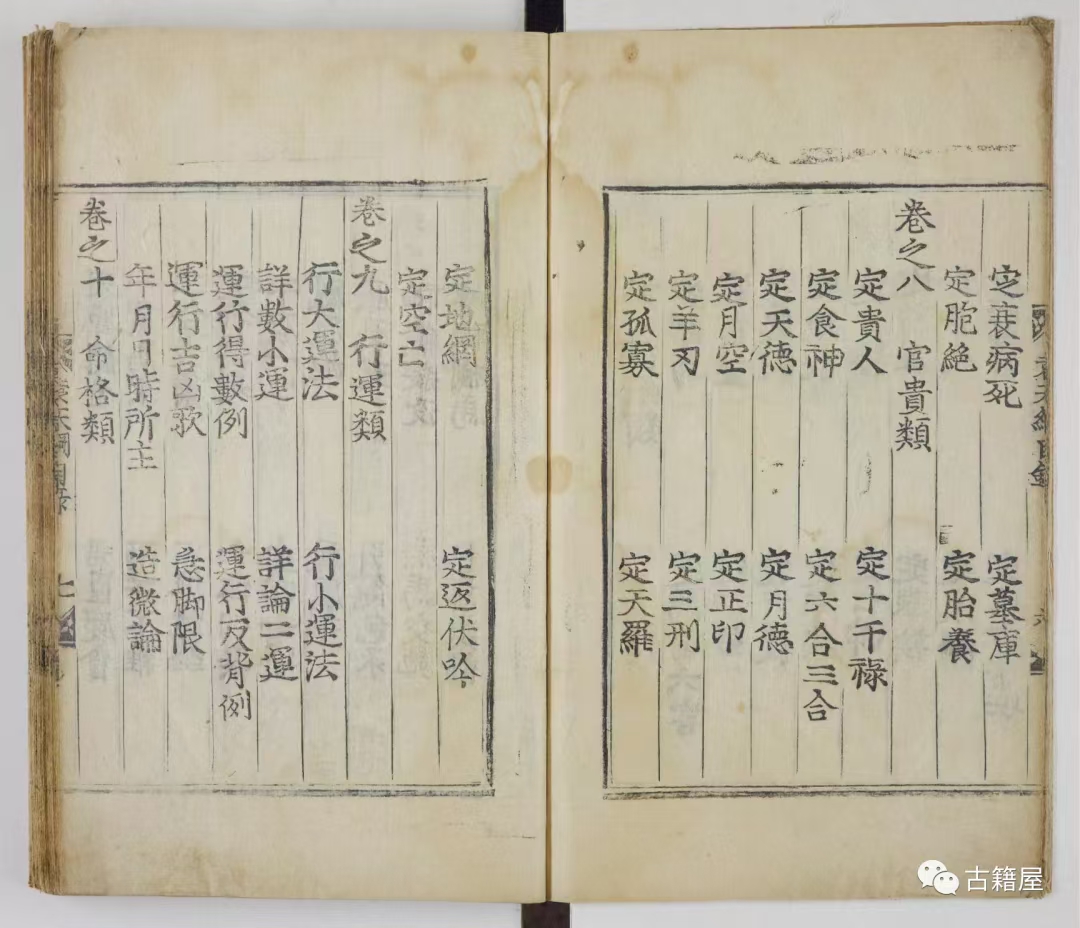 定衰病死 定墓庫
定胞絶 定胎養
卷之八 官貴類
定貴人 定十干祿
定食神 定六合三合
定天德 定月德
定月空 定正印
定羊刃 定三刑
定孤寡 定天羅
定地網 定返伏吟
定空亡
卷之九 行運類
行大運法 行小運法
詳數小運 詳論二運
運行得數例 運行反背例
運行吉凶歌 急脚限
年月日時所主 造微論
卷之十 命格類
古籍屋